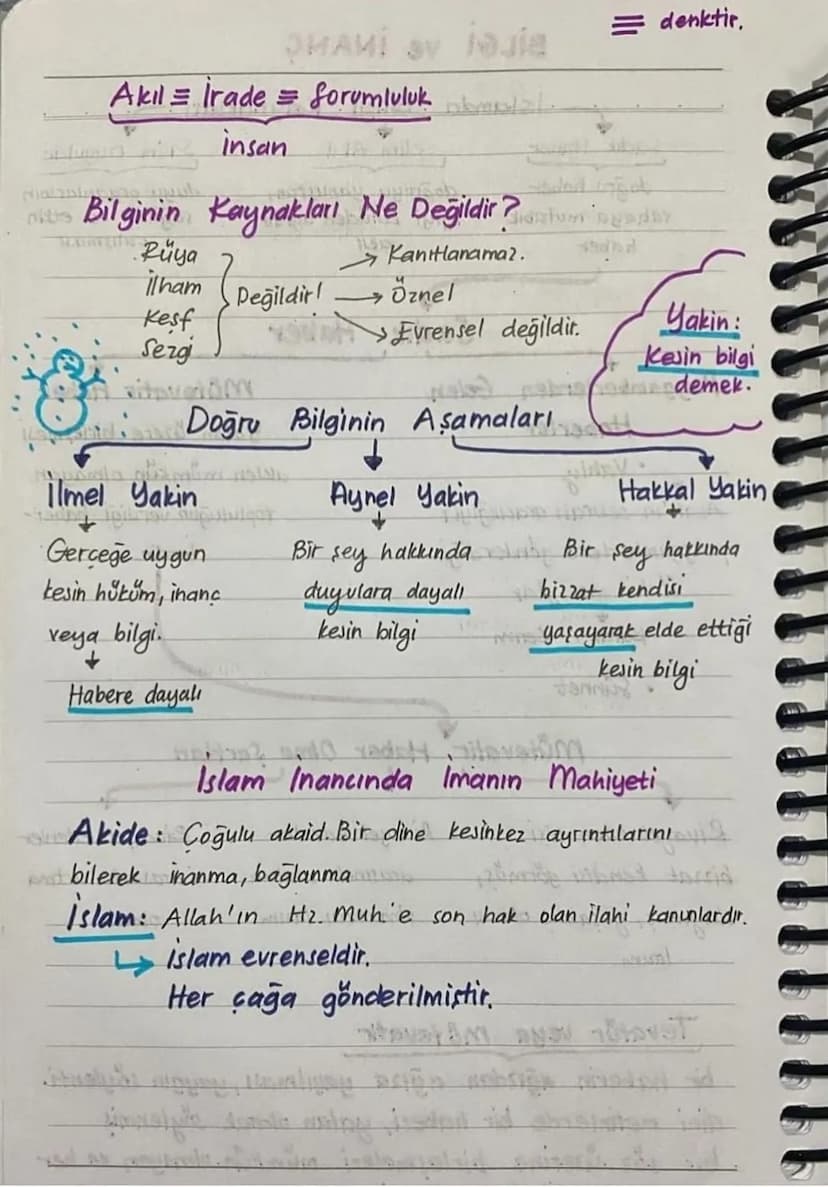 ≡ denktir.
Akıl ≡ İrade ≡ Sorumluluk
insan
Bilginin Kaynakları Ne Değildir?
Rüya
ilham
Keşf
Sezgi
Değildir!
→ Kanıtlanamaz.
→ Öznel
→ Evrensel değildir.
Yakin:
Kesin bilgi
demek.
Doğru Bilginin Aşamaları
İlmel Yakin
Gerçeğe uygun
kesin hüküm, inanç
veya bilgi.
Habere dayalı
Aynel Yakin
Bir şey hakkında
duyulara dayalı
kesin bilgi
Hakkal Yakin
Bir şey hakkında
bizzat kendisi
yaşayarak elde ettiği
kesin bilgi
İslam İnancında İmanın Mahiyeti
Akide: Çoğulu akaid. Bir dine kesinkez ayrıntılarını
bilerek inanma, bağlanma
İslam: Allah'ın Hz. Muh.'e son hak olan ilahi kanunlardır.
↳ İslam evrenseldir.
Her çağa gönderilmiştir.